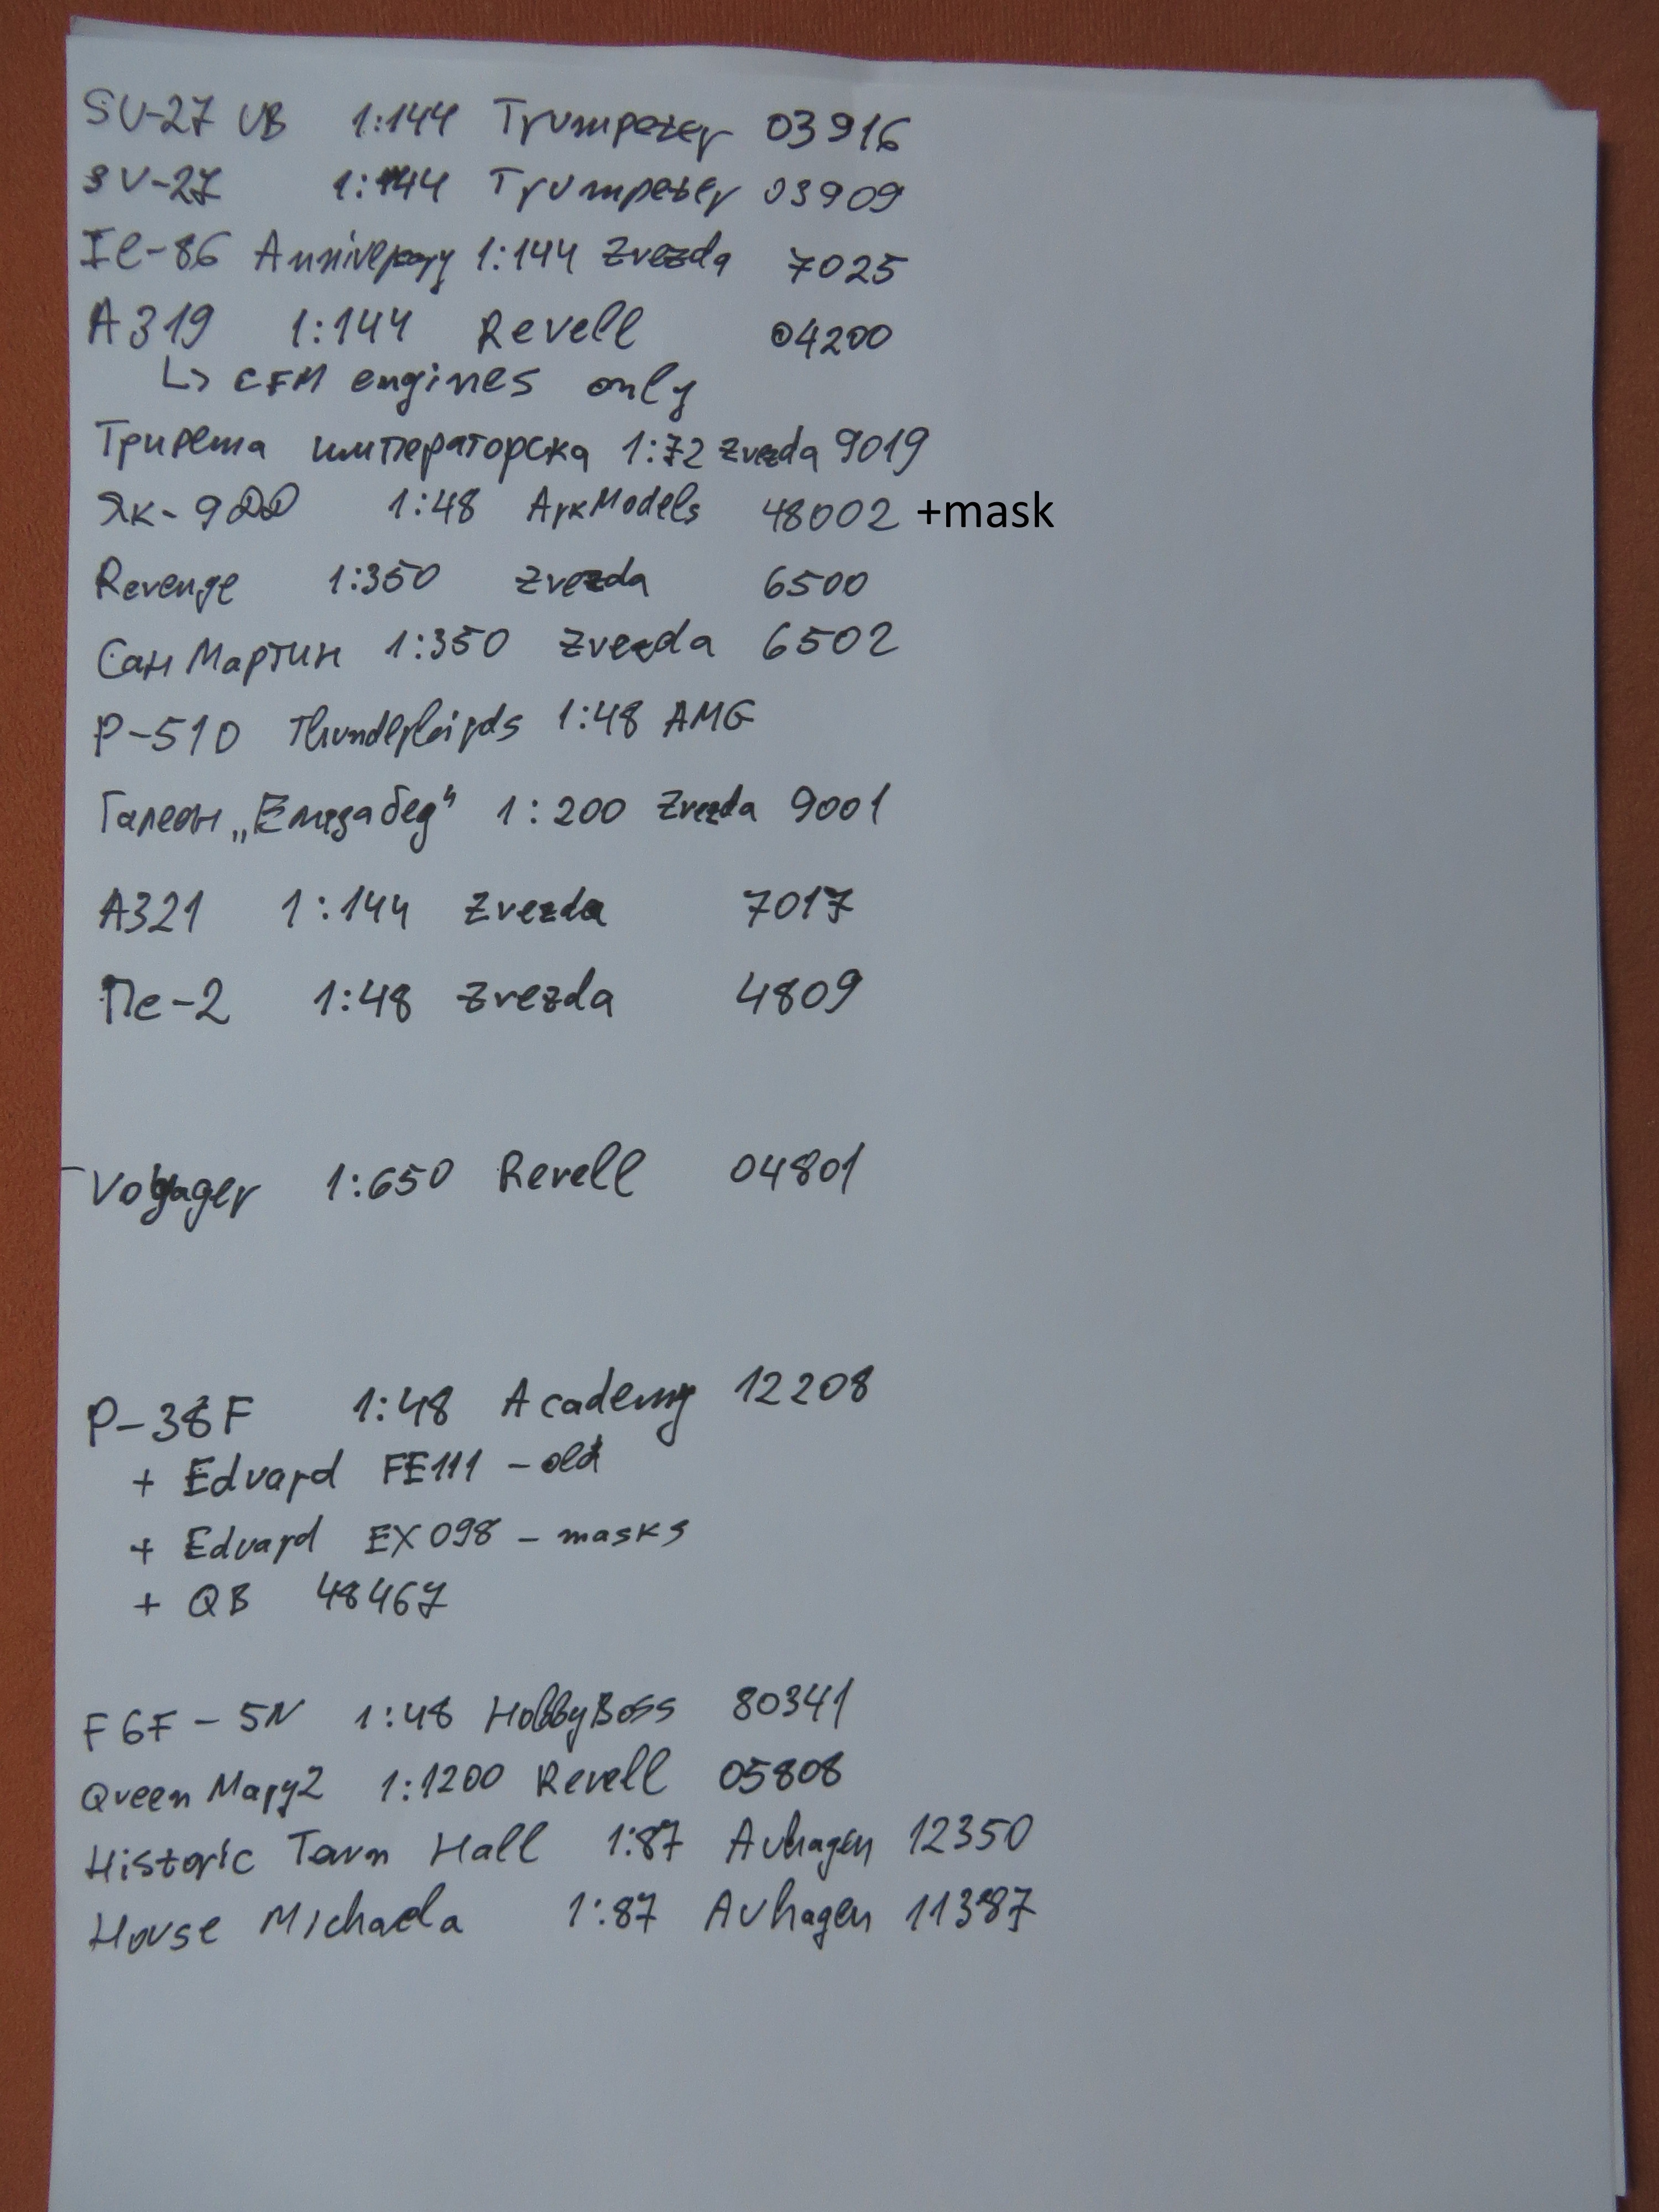 SU-27 UB 1:144 Trumpeter 03916
SU-27 1:144 Trumpeter 03909
Il-86 1:144 Zvezda 7025
A319 1:144 Revell 04200
↳ CFM engines only
Трирема императорска 1:72 Zvezda 9019
Як-9ДД 1:48 ArkModels 48002 +mask
Revenge 1:350 Zvezda 6500
Сан Мартин 1:350 Zvezda 6502
P-51D Thunderbirds 1:48 AMG
Галеон „Елизабед“ 1:200 Zvezda 9001
A321 1:144 Zvezda 7017
Пе-2 1:48 Zvezda 4809
Voyager 1:650 Revell 04801
P-38F 1:48 Academy 12208
+ Eduard FE111 - old
+ Eduard EX098 - masks
+ QB 48467
F6F-5N 1:48 HobbyBoss 80341
Queen Mary2 1:1200 Revell 05808
Historic Town Hall 1:87 Auhagen 12350
House Michaela 1:87 Auhagen 11387